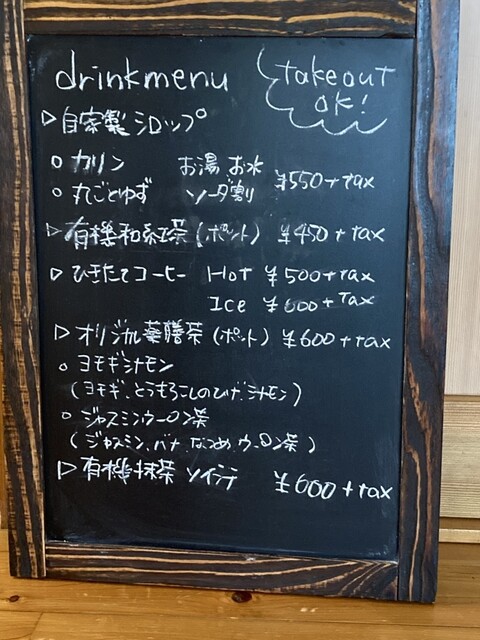 drinkmenu
takeout
OK!
▷自家製シロップ
○カリン お湯 お水
○丸ごとゆず ソーダ割 ¥550+tax
▷有機和紅茶(ポット) ¥450+tax
▷ひきたてコーヒー Hot ¥500+tax
Ice ¥600+Tax
▷オリジナル薬膳茶(ポット) ¥600+tax
○ヨモギシナモン
(ヨモギ、とうもろこしのひげ、シナモン)
○ジャスミンウーロン茶
(ジャスミン、バナ、なつめ、ウーロン茶)
▷有機抹茶ソイラテ ¥600+tax